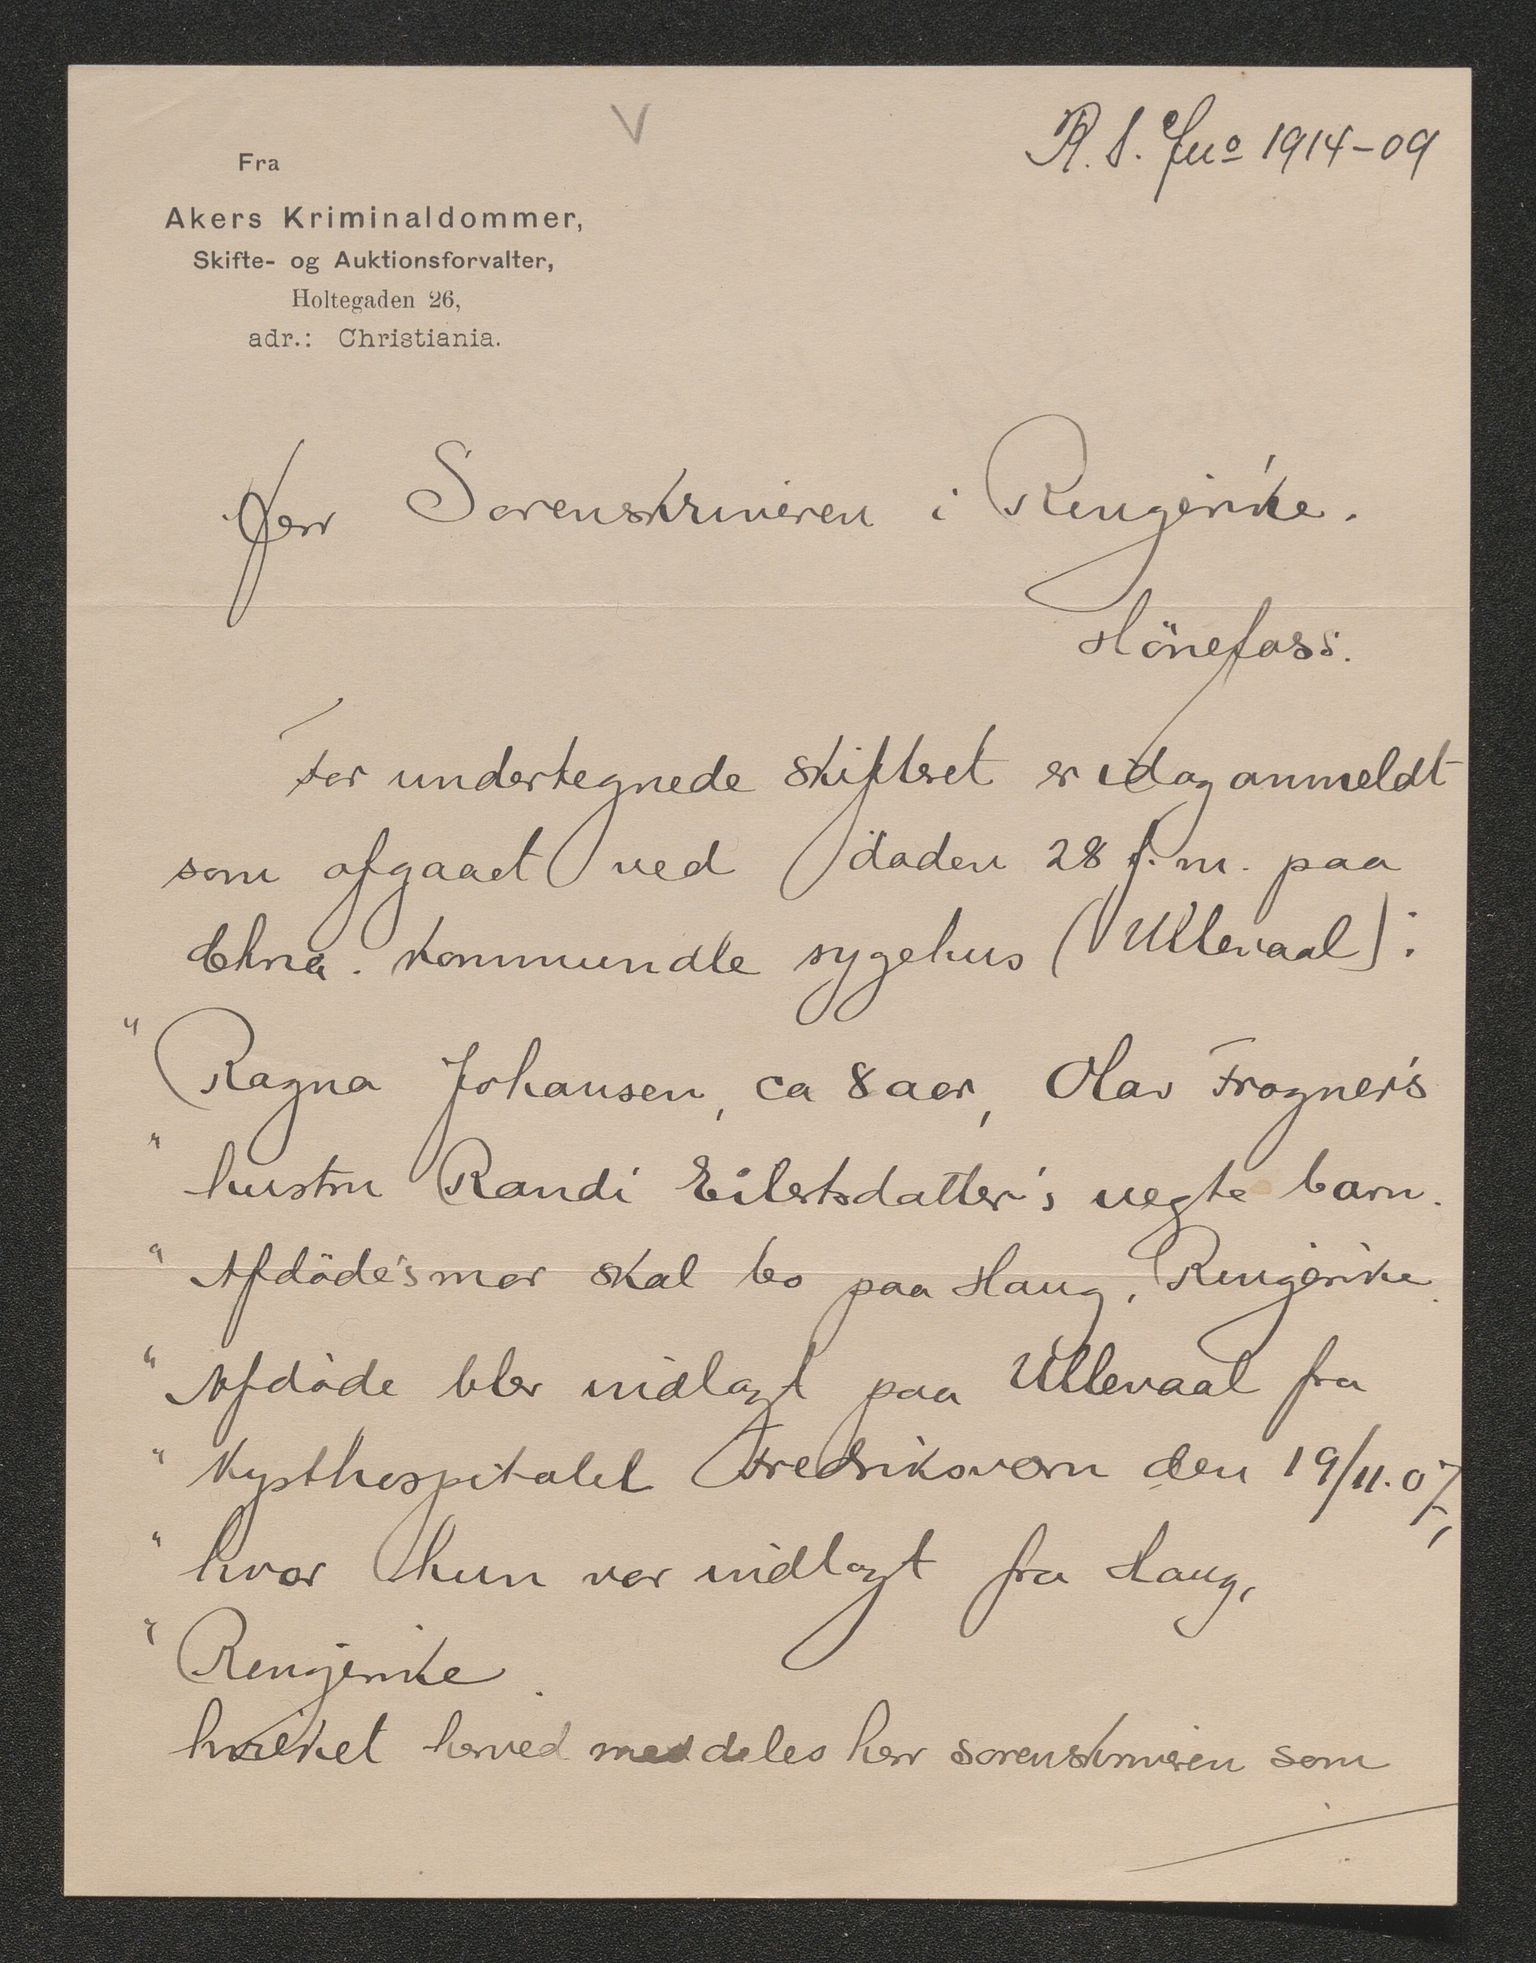 V
R. S. Jno 1914-09
Fra
Akers Kriminaldommer,
Skifte- og Auktionsforvalter,
Holtegaden 26,
adr.: Christiania.
Herr Sorenskriveren i Ringerike.
Hönefoss.
For undertegnede skifteret er idag anmeldt
som afgaaet ved döden 28 f. m. paa
Chra. kommundle sygehus (Ullevaal):
" Ragna Johansen, ca 8 aar, Olav Frogner's
" hustru Randi Eilertsdatter's uegte barn.
" Afdöde's mor skal bo paa Haug, Ringerike.
" Afdöde blev indlagt paa Ullevaal fra
" Kysthospitalet Fredriksvern den 19/11.07,
" hvor hun var indlagt fra Haug,
" Ringerike.
hvilket herved meddeles herr sorenskriveren som